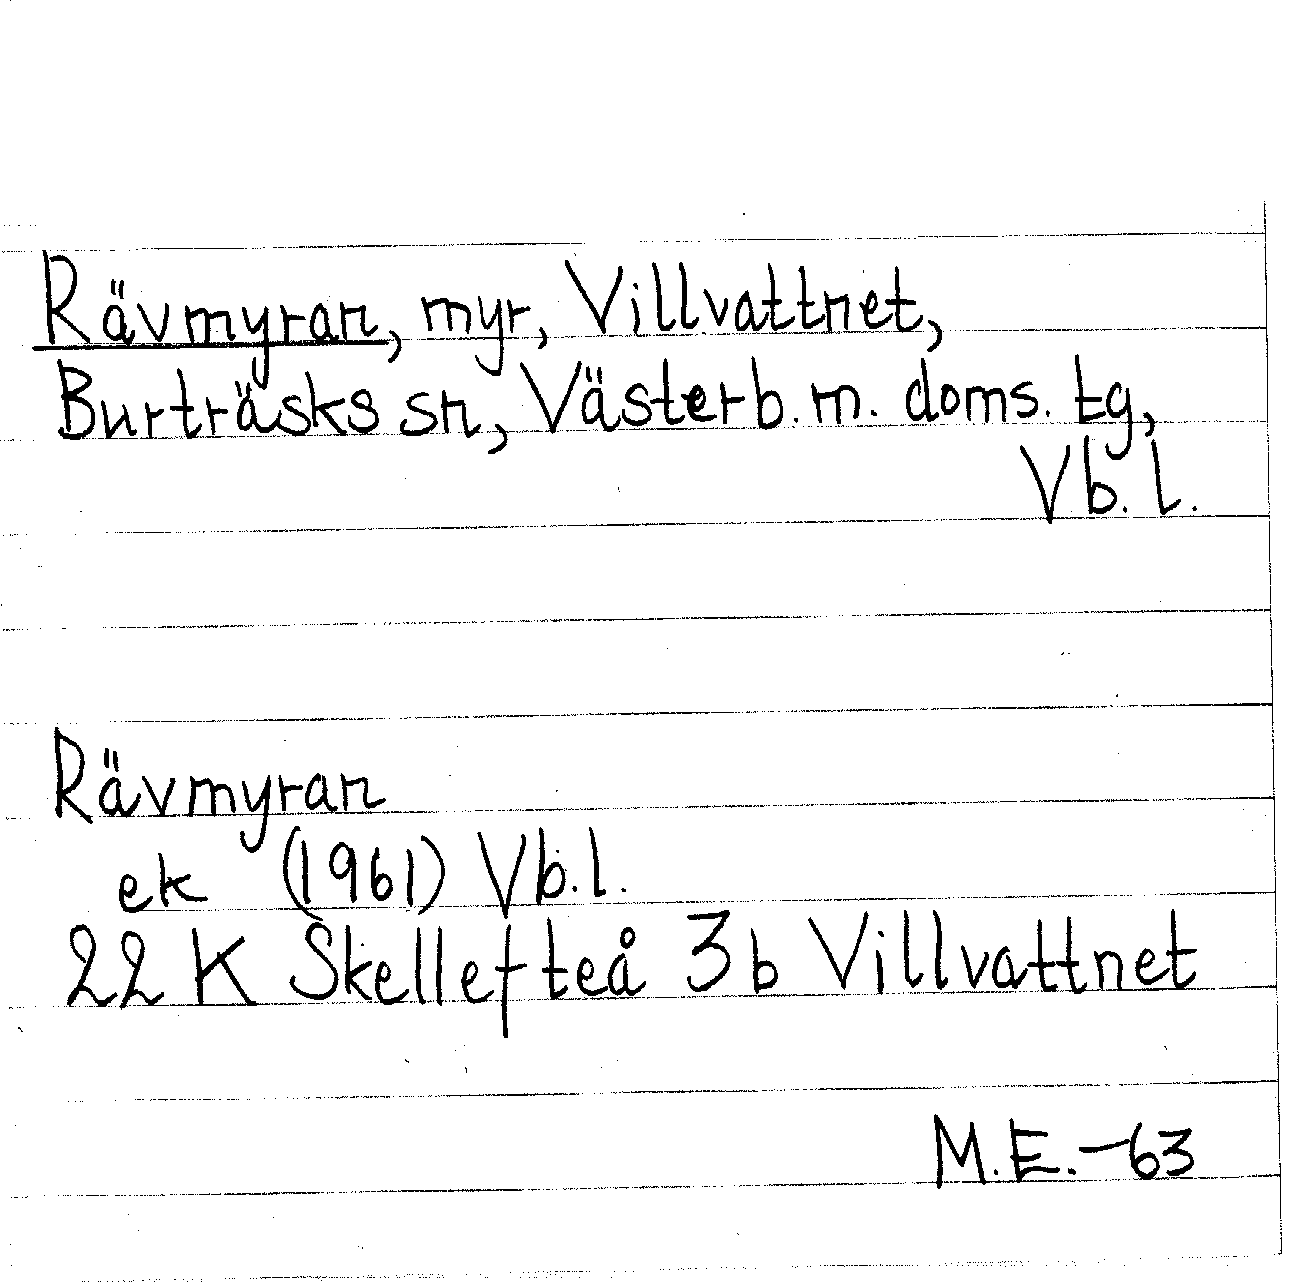 Rävmyran, myr, Villvattnet,
Burträsks sn, Västerb. m. doms. tg,
Vb. l.
Rävmyran
ek (1961) Vb.l.
22 K Skellefteå 3b Villvattnet
M.E.-63